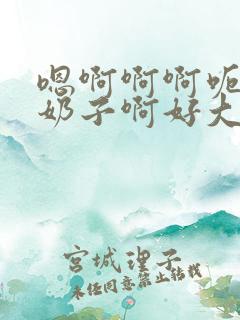 嗯啊啊啊呃
奶子啊好大
宫城理子
未经同意禁止转载